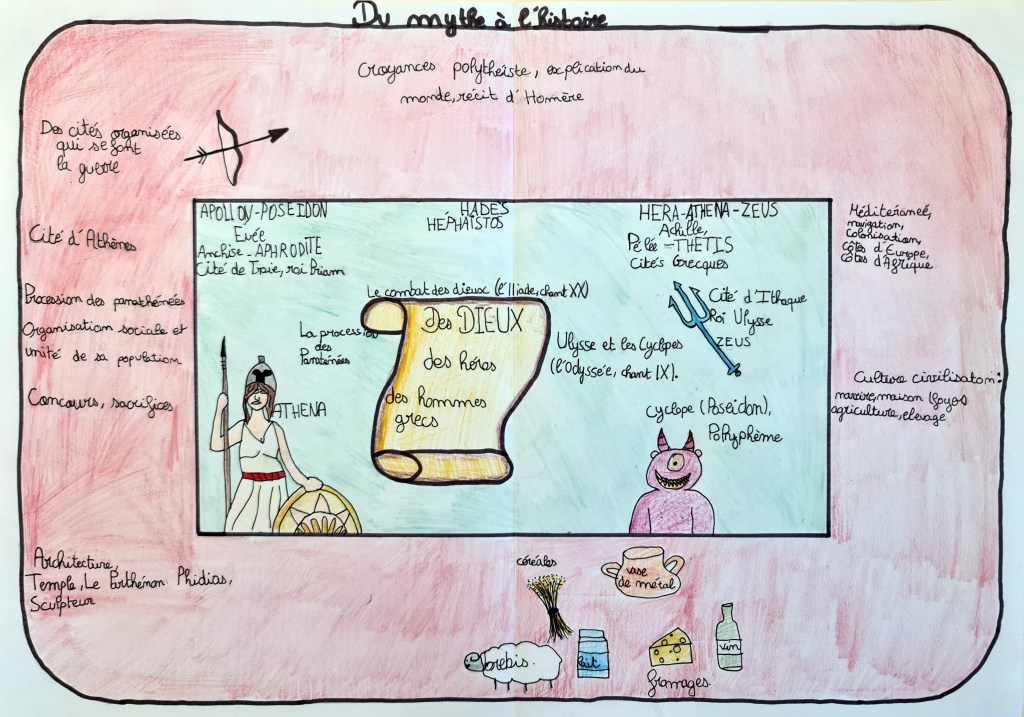 Du mythe à l'histoire
Croyances polythéiste, explication du
monde, récit d'Homère
Des cités organisées
qui se font
la guerre
Cité d'Athènes
Procession des panathénées
Organisation sociale et
unité de sa population
Concours, sacrifices
Architecture,
Temple, Le Parthénon Phidias,
Sculpteur
APOLLON-POSEIDON
Enée
Anchise-APHRODITE
Cité de Troie, roi Priam
HADES
HÉPHAÏSTOS
HERA-ATHENA-ZEUS
Achille,
Pélée=THETIS
Cités Grecques
Le combat des dieux (l'Iliade, chant XX)
La procession
des
Panaténées
Des DIEUX
des héros
des hommes
grecs
Cité d'Ithaque
Roi Ulysse
ZEUS
Ulysse et les Cyclopes
(l'odyssée, chant IX).
ATHENA
cyclope (Poseidon),
Polyphème
Méditéraneé,
navigation,
Colonisation,
côtes d'Europe,
côtes d'Afrique
Culture civilisation:
navire, maison (foyer)
agriculture, elevage
céréales
vase
de métal
brebis.
lait
fromages
vin